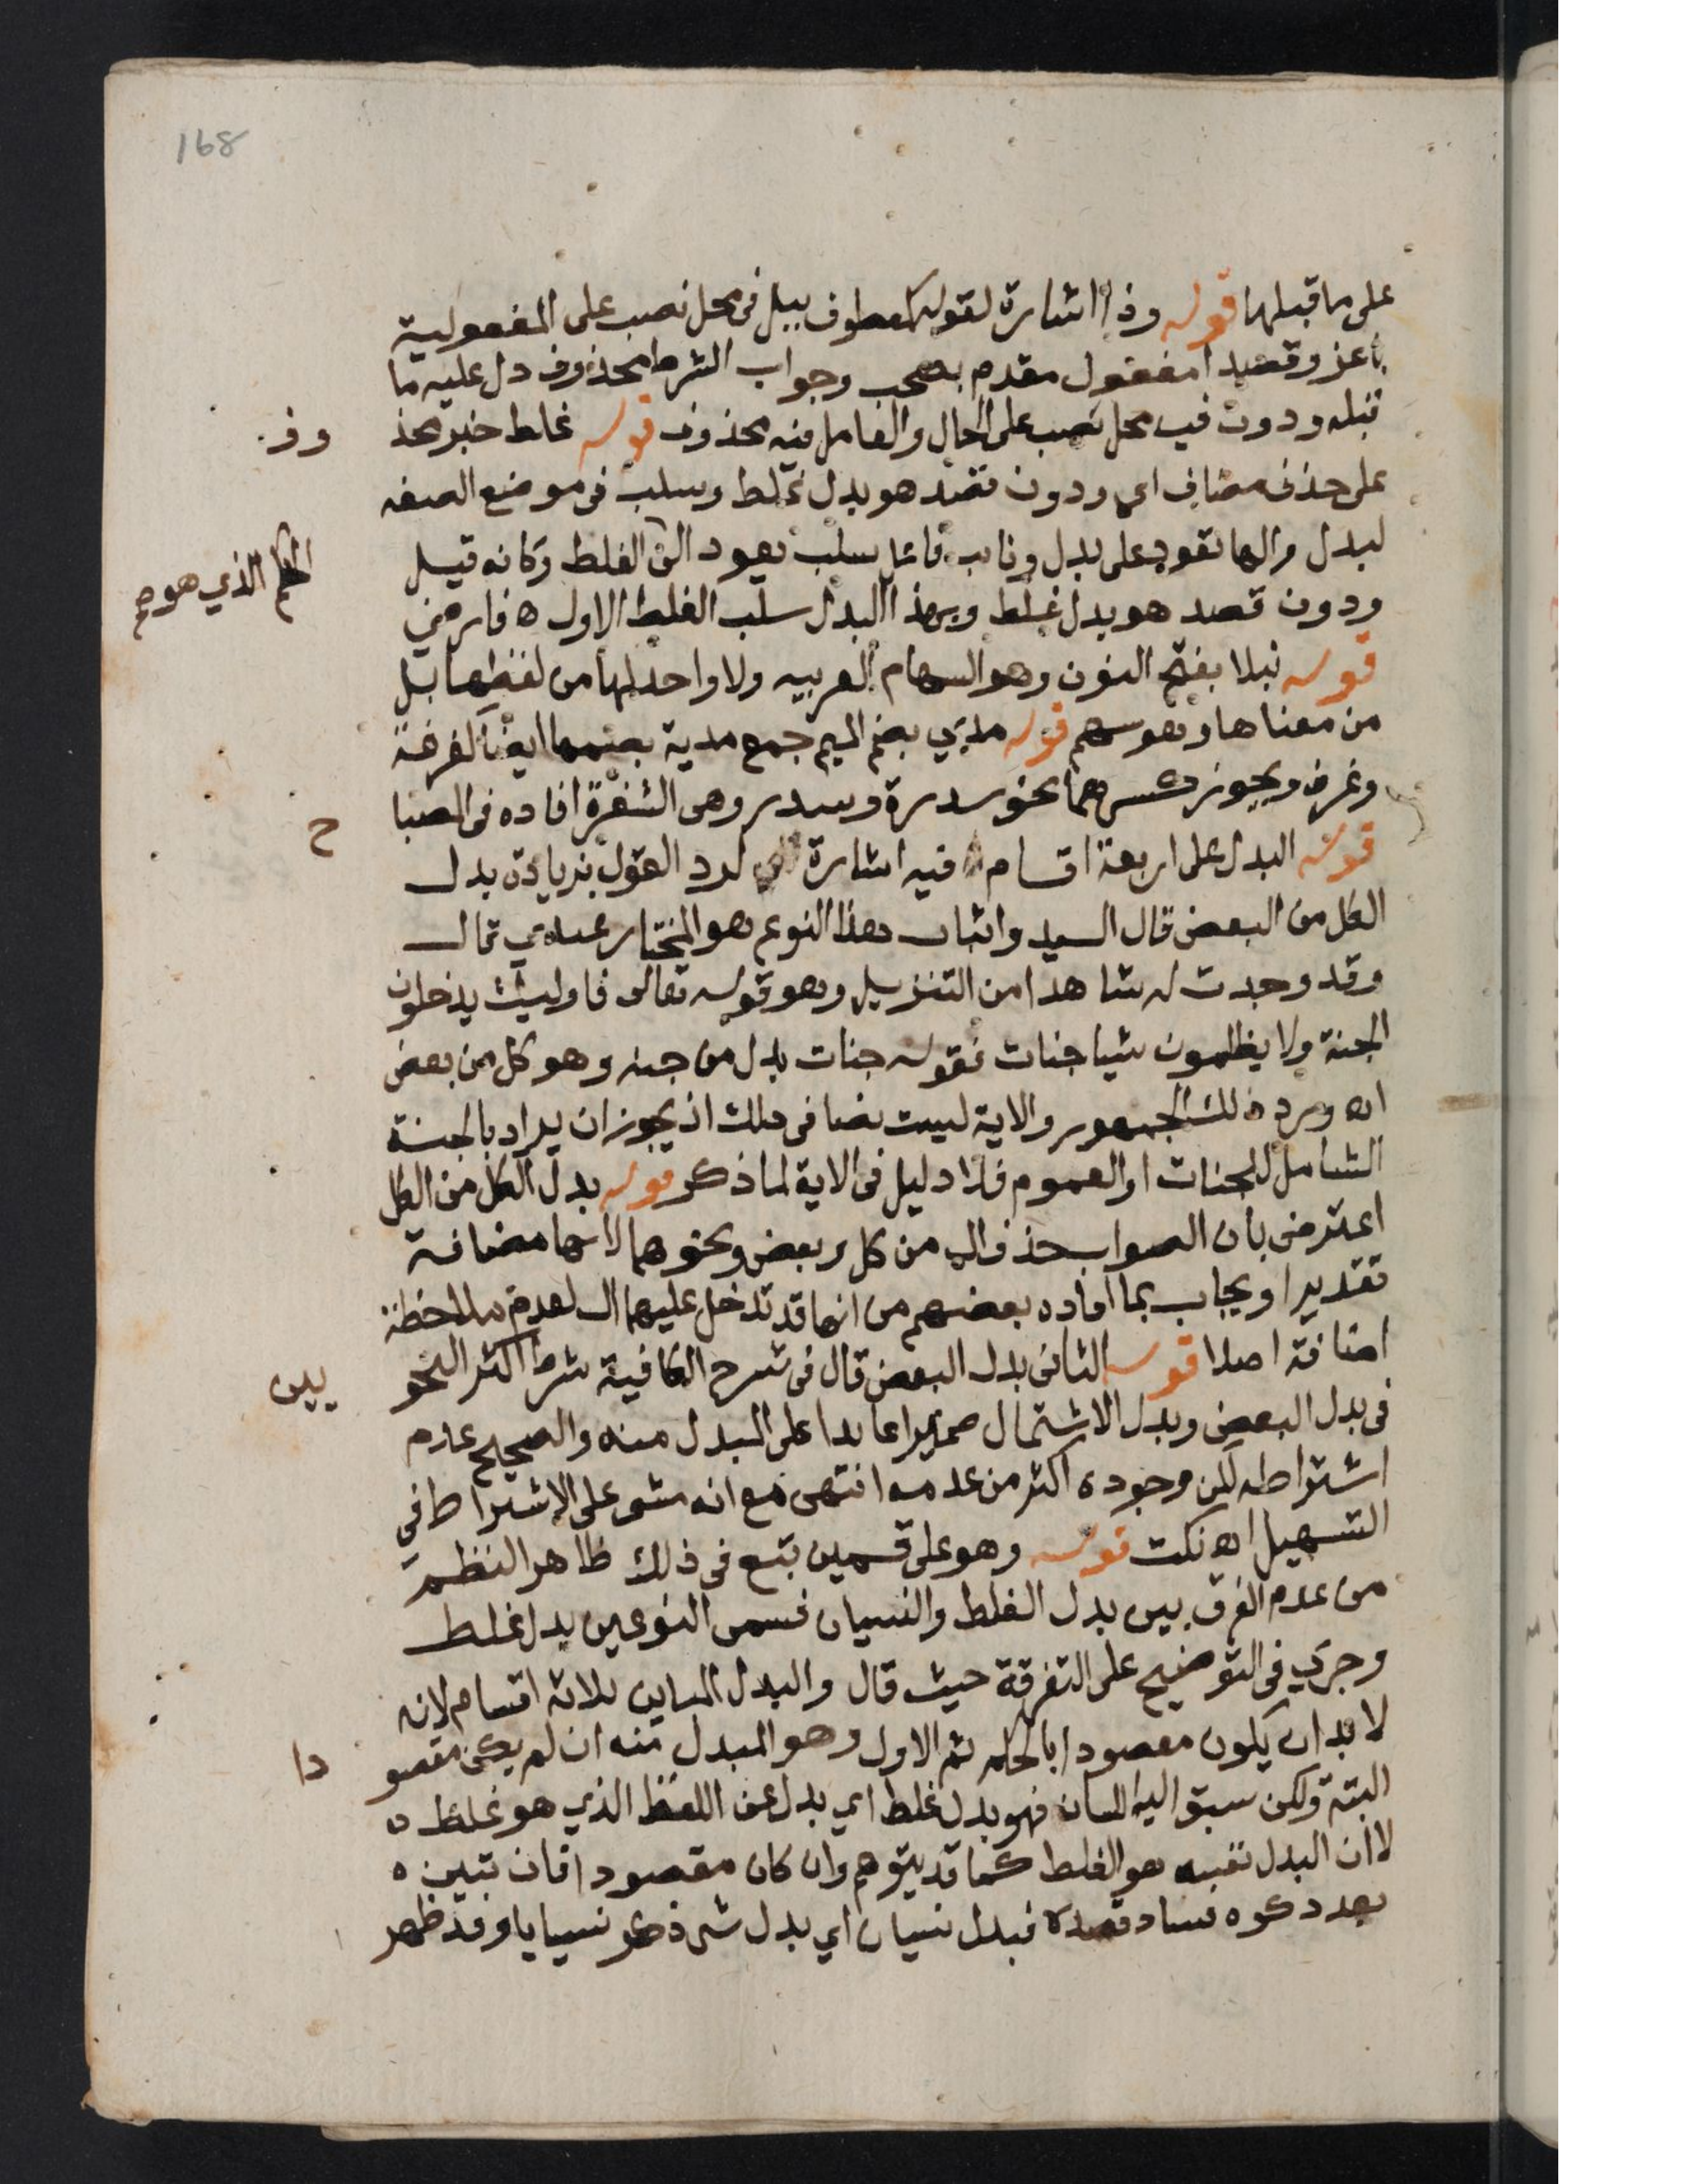 168
على ما قبلها قوله وذا اشارة لقوله كمعطوف ببل فى محل نصب على المفعولية
باعز وقصدا مفعول مقدم بصحب وجواب الشرط محذوف دل عليه ما
قبله ودون فى محل نصب على الحال والعامل فيه محذوف قوله غلط خبر محذ
وف
على حذف مضاف اى ودون قصد هو بدل غلط وسلب فى موضع الصفه
لبدل والها تعود على بدل ونايب فاعل سلب يعود الى الغلط وكانه قيل
الحكم الذي هو صح
ودون قصد هو بدل غلط وبهذا البدل سلب الغلط الاول ه فارضي
قوله نبلا بفتح النون وهو السهام العربيه ولا واحد لها من لفظها بل
من معناها وهو سهم قوله مدي بضم الميم جمع مدية بضمها ايضا كغرفة
وغرف ويجوز كسرهما نحو سدرة وسدر وهى الشفرة افاده فى المصبا
ح
قوله البدل على اربعة اقسام فيه اشارة لرد القول بزيادة بدل
الكل من البعض قال السيد واثبات هذا النوع هو المختار عندي قال
وقد وجدت له شاهدا من التنزيل وهو قوله تعالى فاوليك يدخلون
الجنة ولا يظلمون شيا جنات فقوله جنات بدل من جنه وهو كل من بعض
اه ورد ذلك الجمهور والاية ليست نصا فى ذلك اذ يجوز ان يراد بالجنة
الشامل للجنات او العموم فلا دليل فى الاية لما ذكر قوله بدل الكل من الكل
اعترض بان الصواب حذف ال من كل وبعض ونحوهما لانها مضافة
تقديرا ويجاب بما افاده بعضهم من انها قد تدخل عليهما ال لعدم ملاحظة
اضافة اصلا قوله الثانى بدل البعض قال فى شرح الكافية شرط اكثر النحو
يين
فى بدل البعض وبدل الاشتمال ضميرا عايدا على المبدل منه والصحيح عدم
اشتراطه لكن وجوده اكثر من عدمه انتهى مع انه مشى على الاشتراط في
التسهيل اه نكت قوله وهو على قسمين تبع فى ذلك ظاهر النظم
من عدم الفرق بين بدل الغلط والنسيان فسمى النوعين بدل غلط
وجري فى التوضيح على التفرقة حيث قال والبدل المباين ثلاثة اقسام لانه
لا بد ان يكون مقصودا بالحكم ثم الاول وهو المبدل منه ان لم يكن مقصو
دا
البتة ولكن سبق اليه اللسان فهو بدل غلط اي بدل عن اللفظ الذي هو غلط ه
لا ان البدل نفسه هو الغلط كما قد يتوهم وان كان مقصودا فان تبين ه
بعد ذكره فساد قصده فبدل نسيان اي بدل شى ذكر نسيانا وقد ظهر